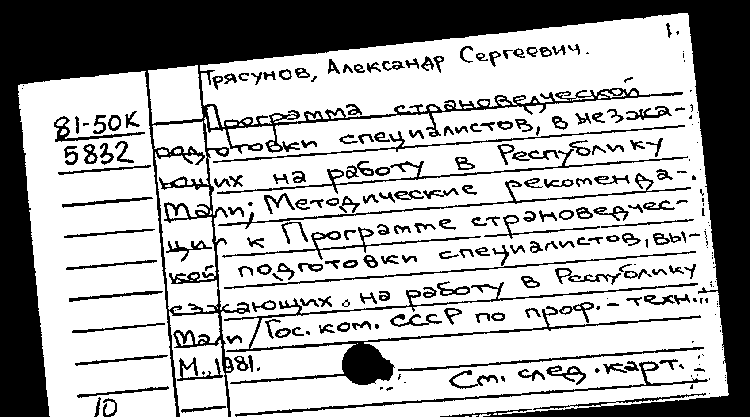 1.
Трясунов, Александр Сергеевич.
81-50К
5832
Программа страноведческой
подготовки специалистов, выезжа-
ющих на работу в Республику
Мали; Методические рекоменда-
ции к Программе страноведчес-
кой подготовки специалистов, вы-
езжающих на работу в Республику
Мали / Гос. ком. СССР по проф.-техн...
М., 1981.
См. след. карт.
10